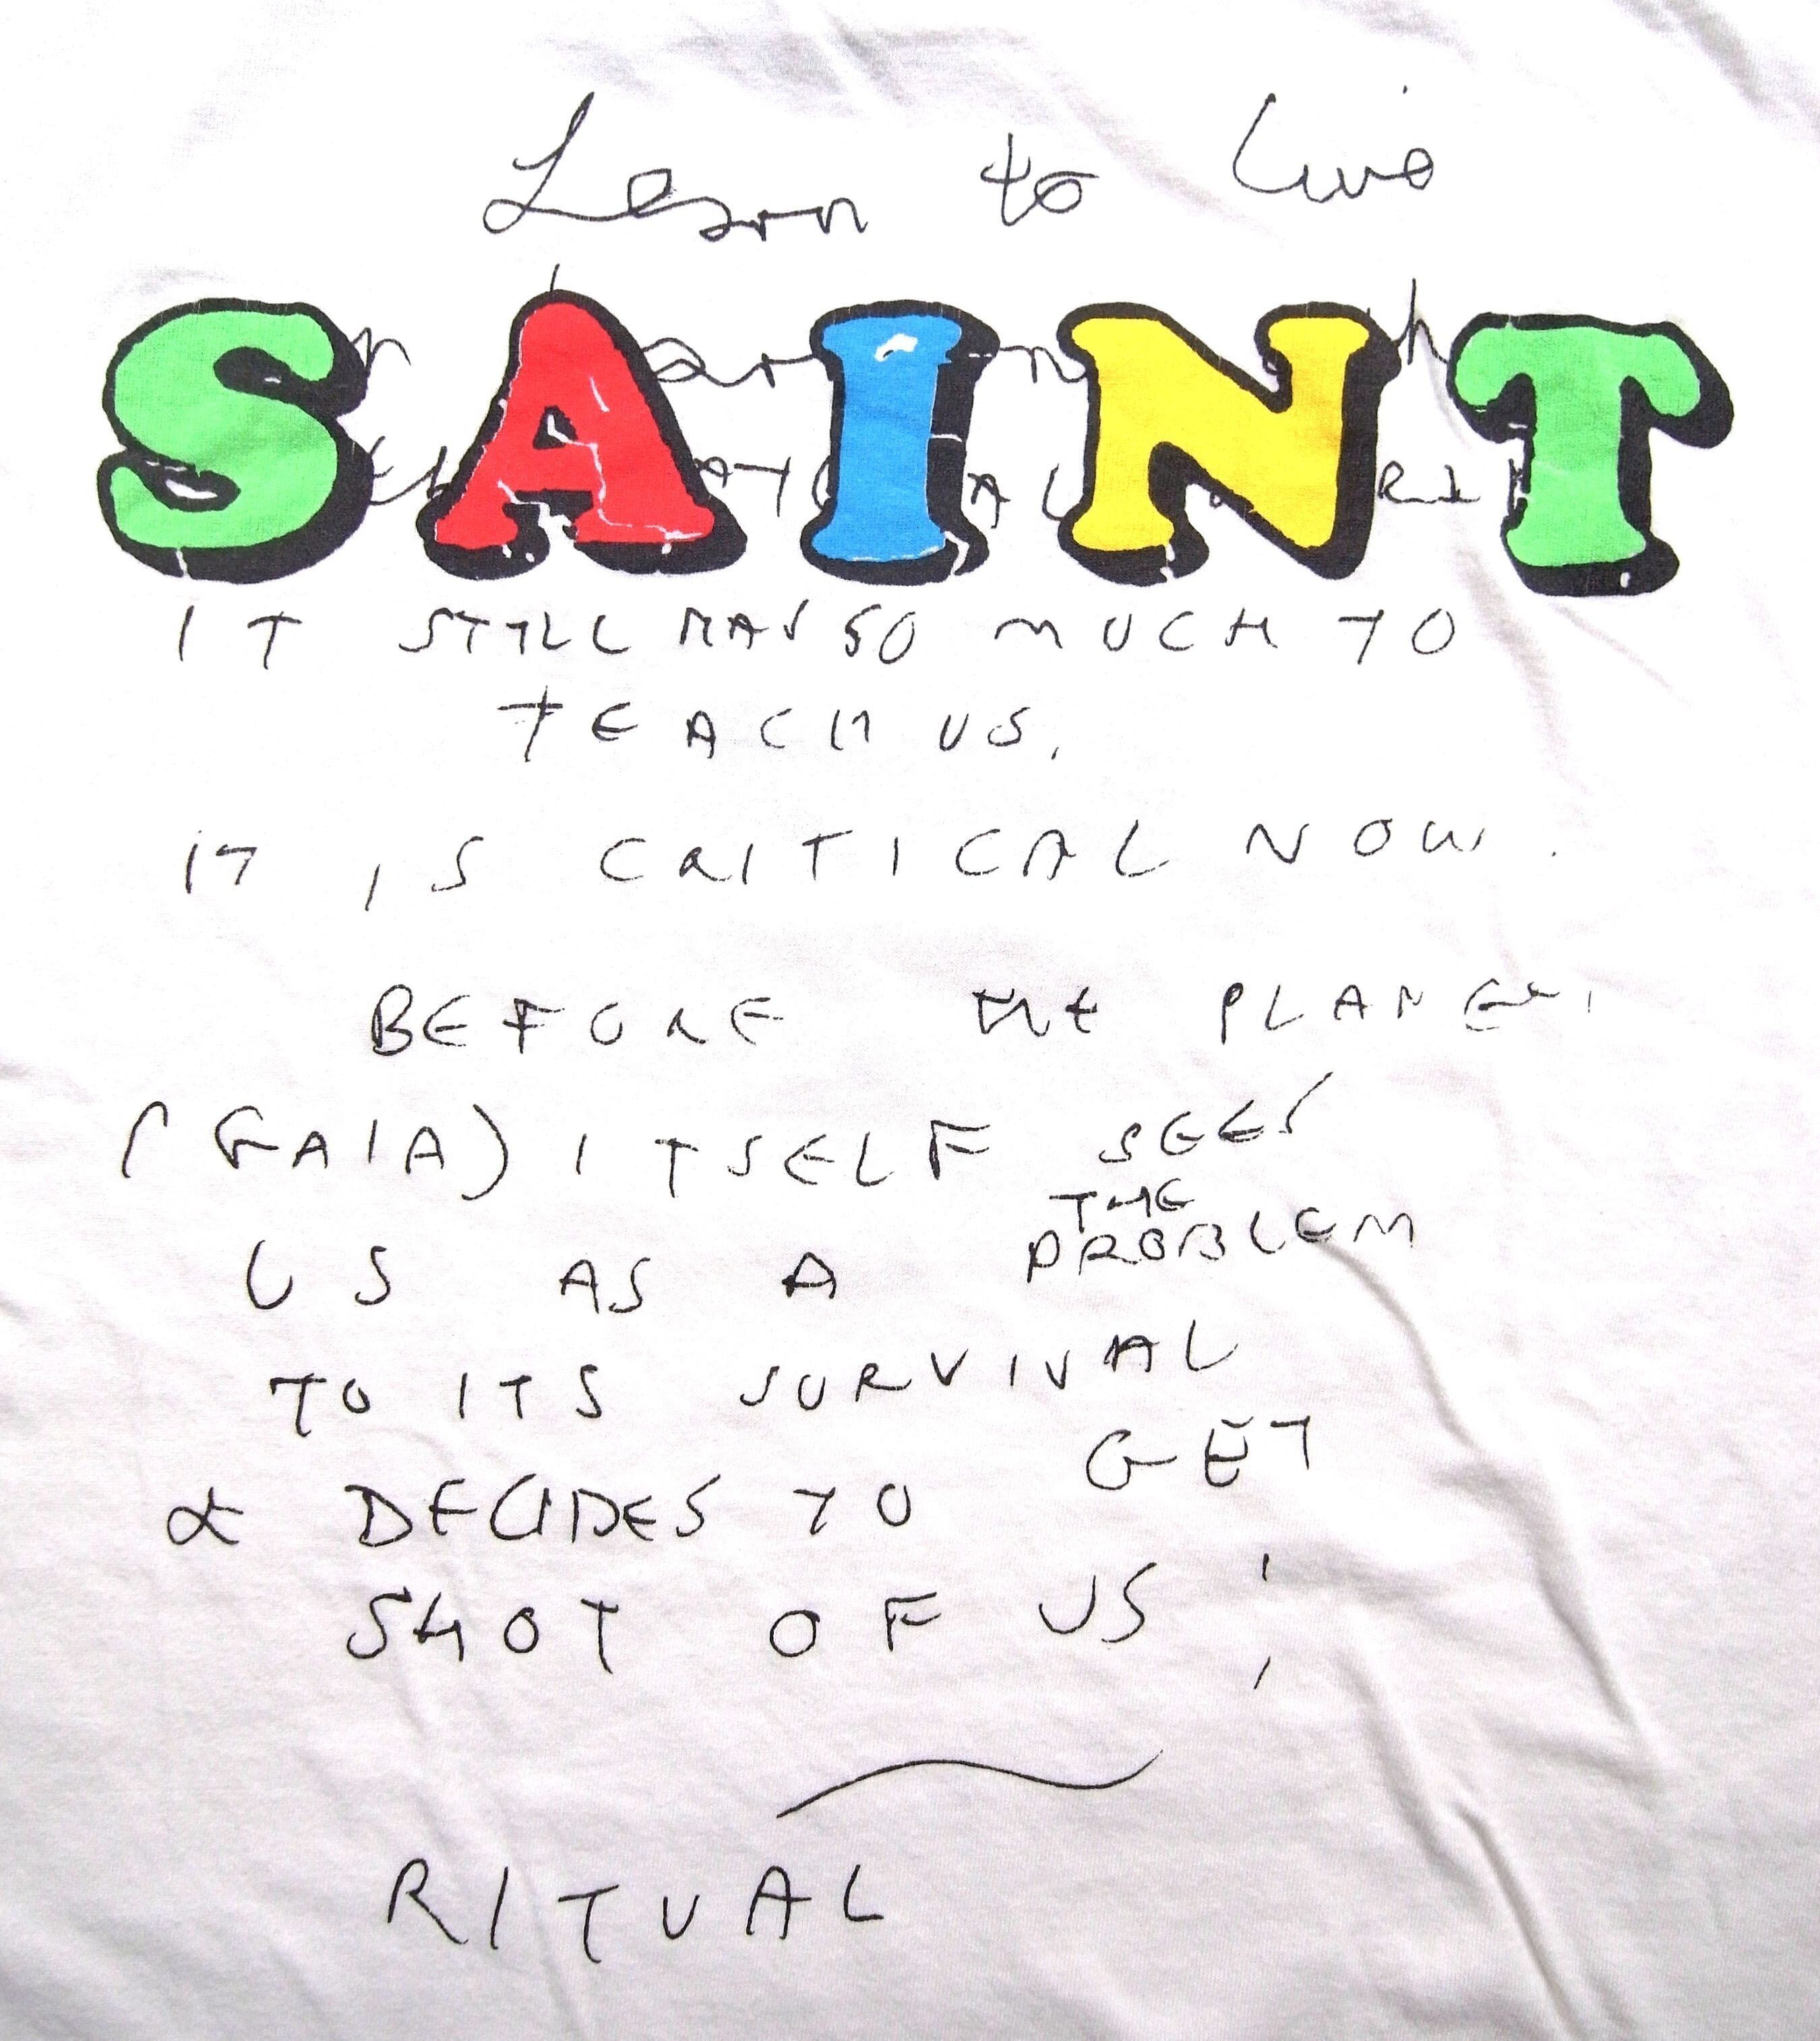 Learn to live
SAINT
IT STILL HAS SO MUCH TO
TEACH US.
IT IS CRITICAL NOW.
BEFORE THE PLANET
(GAIA) ITSELF SEES
US AS A THE PROBLEM
TO ITS SURVIVAL
& DECIDES TO GET
SHOT OF US;
RITUAL